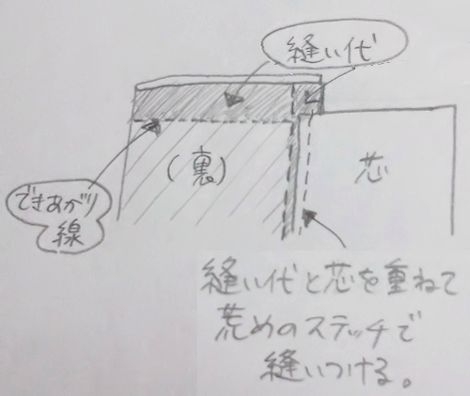 縫い代
(裏)
芯
できあがり
線
縫い代と芯を重ねて
荒めのステッチで
縫いつける。